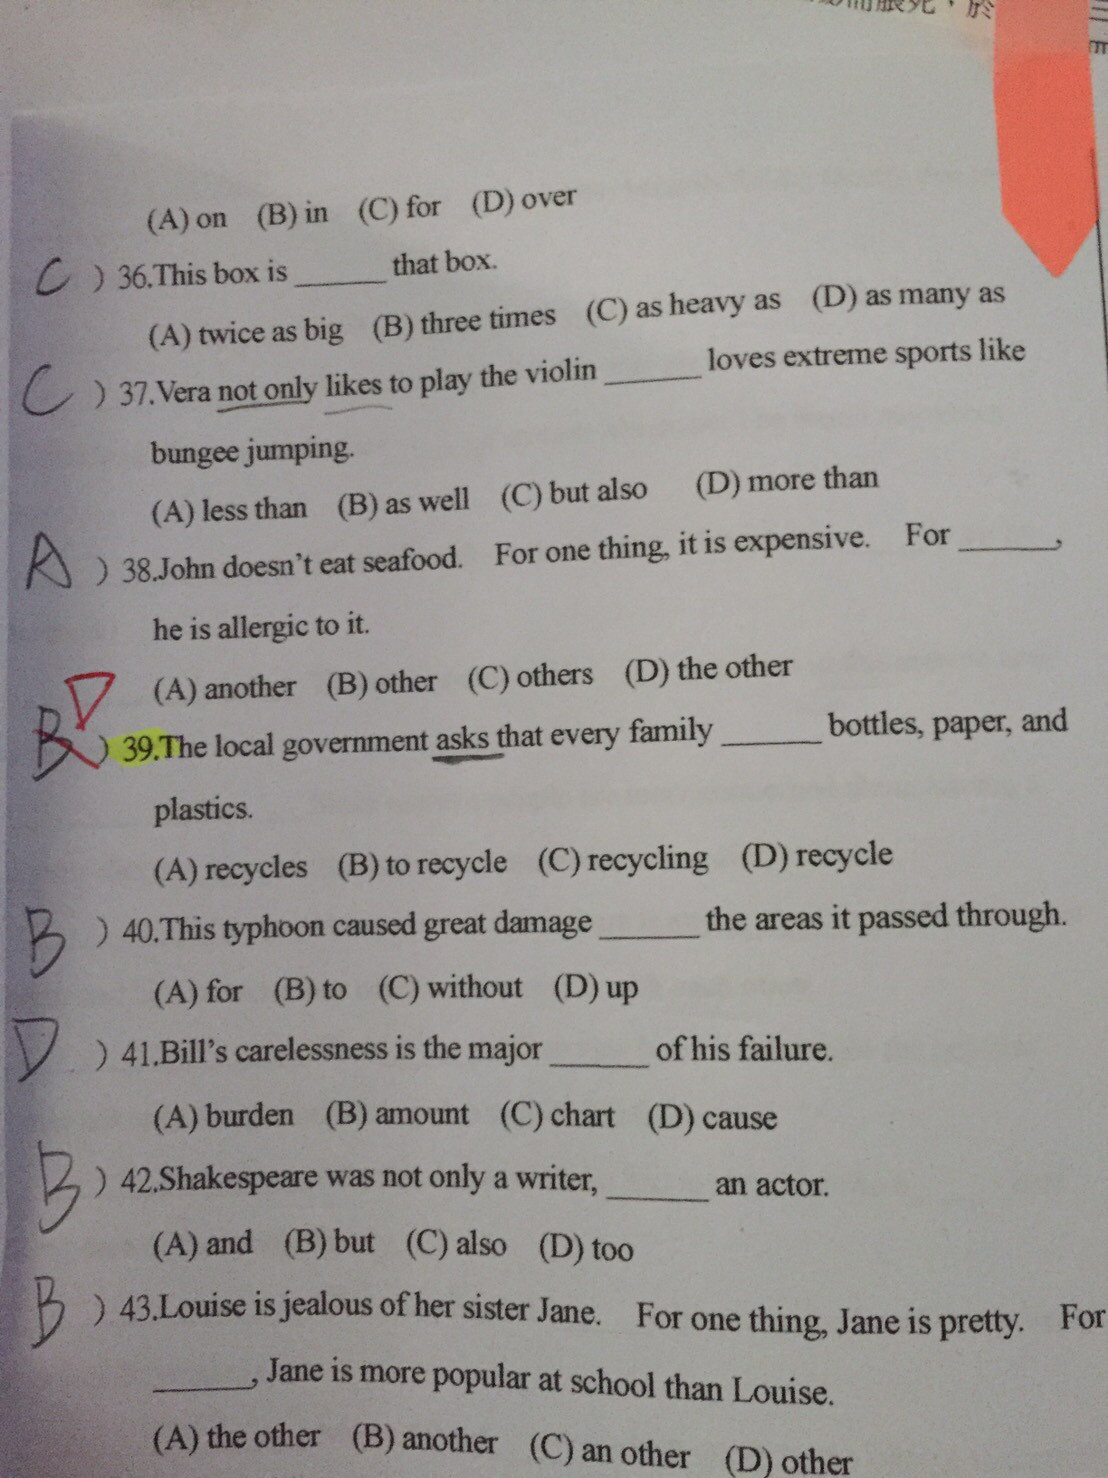 (A) on (B) in (C) for (D) over
C ) 36.This box is ______ that box.
(A) twice as big (B) three times (C) as heavy as (D) as many as
C ) 37.Vera not only likes to play the violin ______ loves extreme sports like
bungee jumping.
(A) less than (B) as well (C) but also (D) more than
A ) 38.John doesn't eat seafood. For one thing, it is expensive. For ______,
he is allergic to it.
(A) another (B) other (C) others (D) the other
D
B ) 39.The local government asks that every family ______ bottles, paper, and
plastics.
(A) recycles (B) to recycle (C) recycling (D) recycle
B ) 40.This typhoon caused great damage ______ the areas it passed through.
(A) for (B) to (C) without (D) up
D ) 41.Bill's carelessness is the major ______ of his failure.
(A) burden (B) amount (C) chart (D) cause
B ) 42.Shakespeare was not only a writer, ______ an actor.
(A) and (B) but (C) also (D) too
B ) 43.Louise is jealous of her sister Jane. For one thing, Jane is pretty. For
______, Jane is more popular at school than Louise.
(A) the other (B) another (C) an other (D) other